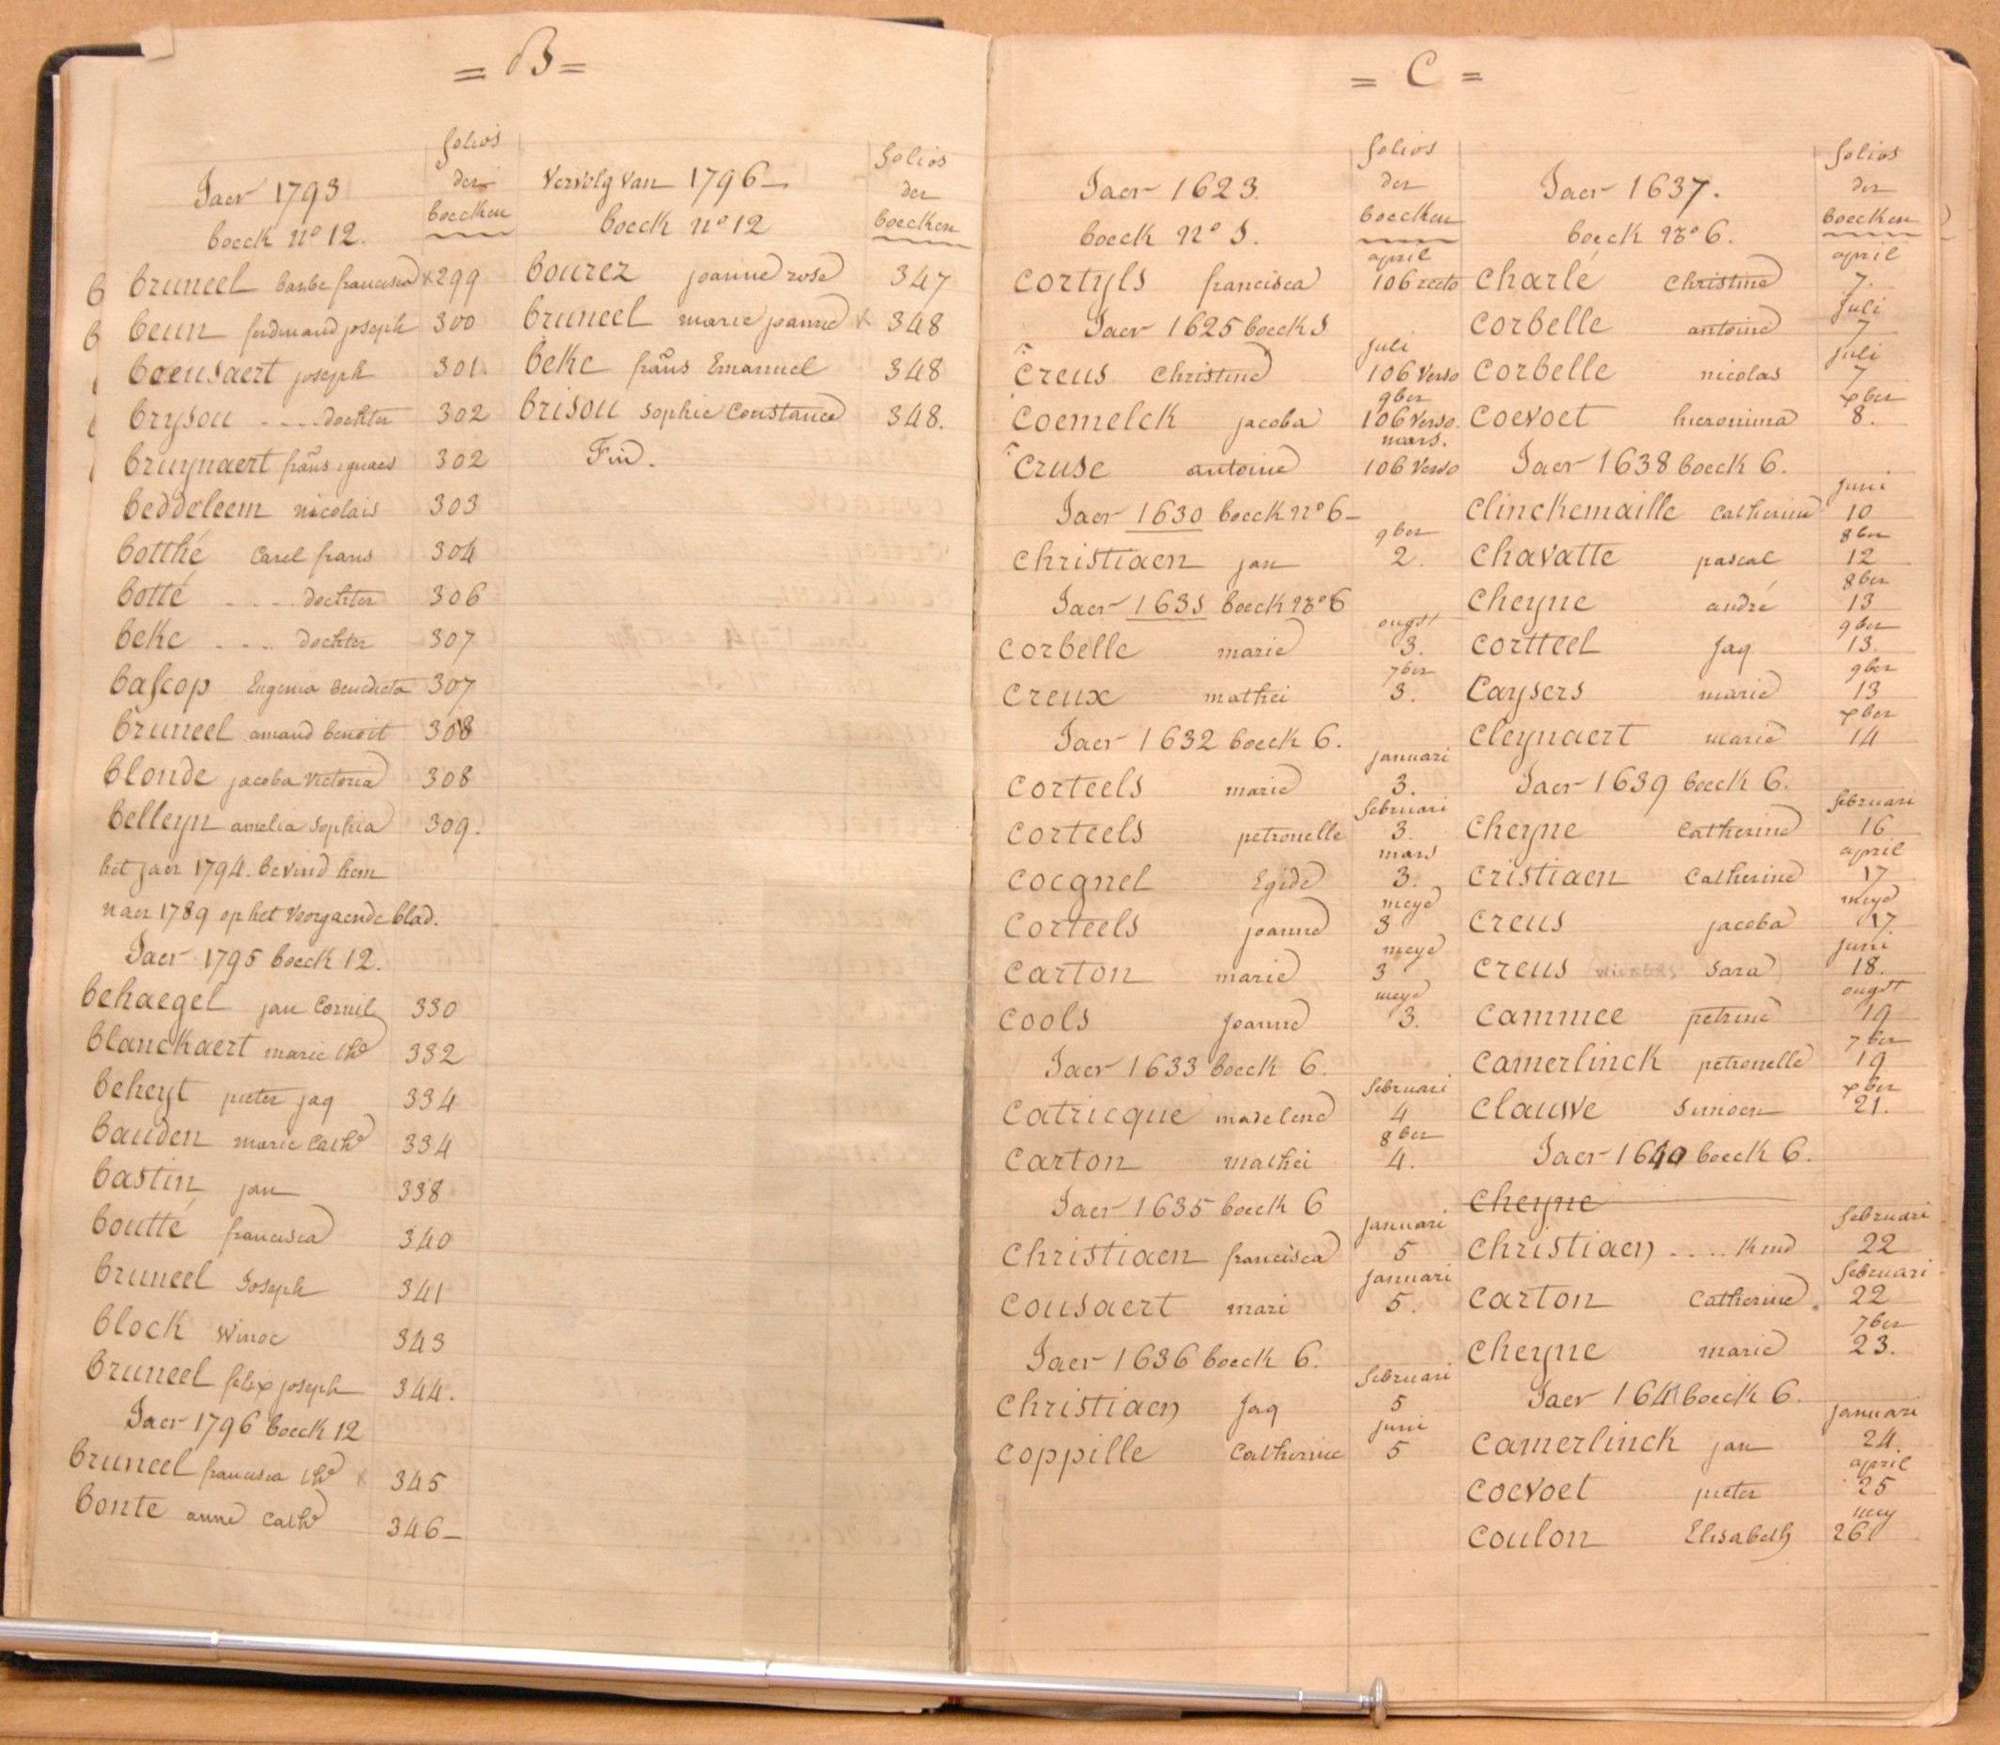 = B =
folios
Jaer 1793 der
boeck nº 12. boecken
B bruneel barbe francisca x 299
B beun ferdinand joseph 300
boeusaert joseph 301
brysou .... dochter 302
bruynaert frans ignaes 302
beddeleem nicolais 303
botthé Carel frans 304
botté .... dochter 306
beke .... dochter 307
bascop Eugenia benedicta 307
bruneel amand benoit 308
blonde jacoba victoria 308
belleyn amelia sophia 309.
het jaer 1794. bevind hem
naer 1789 op het voorgaende blad.
Jaer 1795 boeck 12.
behaegel jan Cornil 330
blanckaert marie the 332
beheyt pieter jaq 334
bauden marie Cathe 334
bastin jan 338
boutté francisca 340
bruneel Joseph 341
block winoc 343
bruneel felix joseph 344.
Jaer 1796 boeck 12
bruneel francisca the x 345
bonte anne Cathe 346-
folios
Vervolg van 1796 der
boeck nº 12 boecken
bourez joanne rose 347
bruneel marie joanne x 348
beke frans Emanuel 348
brisou sophie Constance 348.
Fin.
= C =
folios
Jaer 1623. der
boeck nº 5. boecken
april
cortyls francisca 106 recto
Jaer 1625 boeck 5
juli
creus christine 106 verso
9ber
coemelck jacoba 106 verso.
mars.
cruse antoine 106 verso
Jaer 1630 boeck nº 6-
9ber
christiaen jan 2.
Jaer 1631 boeck nº 6
ougst
corbelle marie 3.
7ber
creux mathei 3.
Jaer 1632 boeck 6.
januari
corteels marie 3.
februari
corteels petronelle 3.
mars
cocqnel Egide 3.
meye
corteels joanne 3
meye
carton marie 3
meye
cools joanne 3.
Jaer 1633 boeck 6.
februari
catricque madelene 4
8ber
carton mathei 4.
Jaer 1635 boeck 6
januari
christiaen francisca 5
januari
cousaert mari 5.
Jaer 1636 boeck 6.
februari
christiaen jaq 5
juni
coppille Catherine 5
folios
Jaer 1637. der
boeck nº 6. boecken
april
charlé christine 7.
juli
corbelle antoine 7
juli
corbelle nicolas 7
xber
coevoet hieronima 8.
Jaer 1638 boeck 6.
juni
clinckemaille catherine 10
8ber
chavatte pascal 12
8ber
cheyne andré 13
9ber
cortteel jaq 13.
9ber
caysers marie 13
xber
cleynaert marie 14
Jaer 1639 boeck 6.
februari
cheyne catherine 16
april
cristiaen catherine 17
meye
creus jacoba 17
juni
creus sara 18.
ougst
cammee petrine 19
7ber
camerlinck petronelle 19
xber
clauwe simoen 21.
Jaer 1640 boeck 6.
cheyne
februari
christiaen .... kind 22
februari
carton catherine. 22
7ber
cheyne marie 23.
Jaer 1641 boeck 6.
januari
camerlinck jan 24.
april
coevoet pieter 25
mey
coulon Elisabeth 26